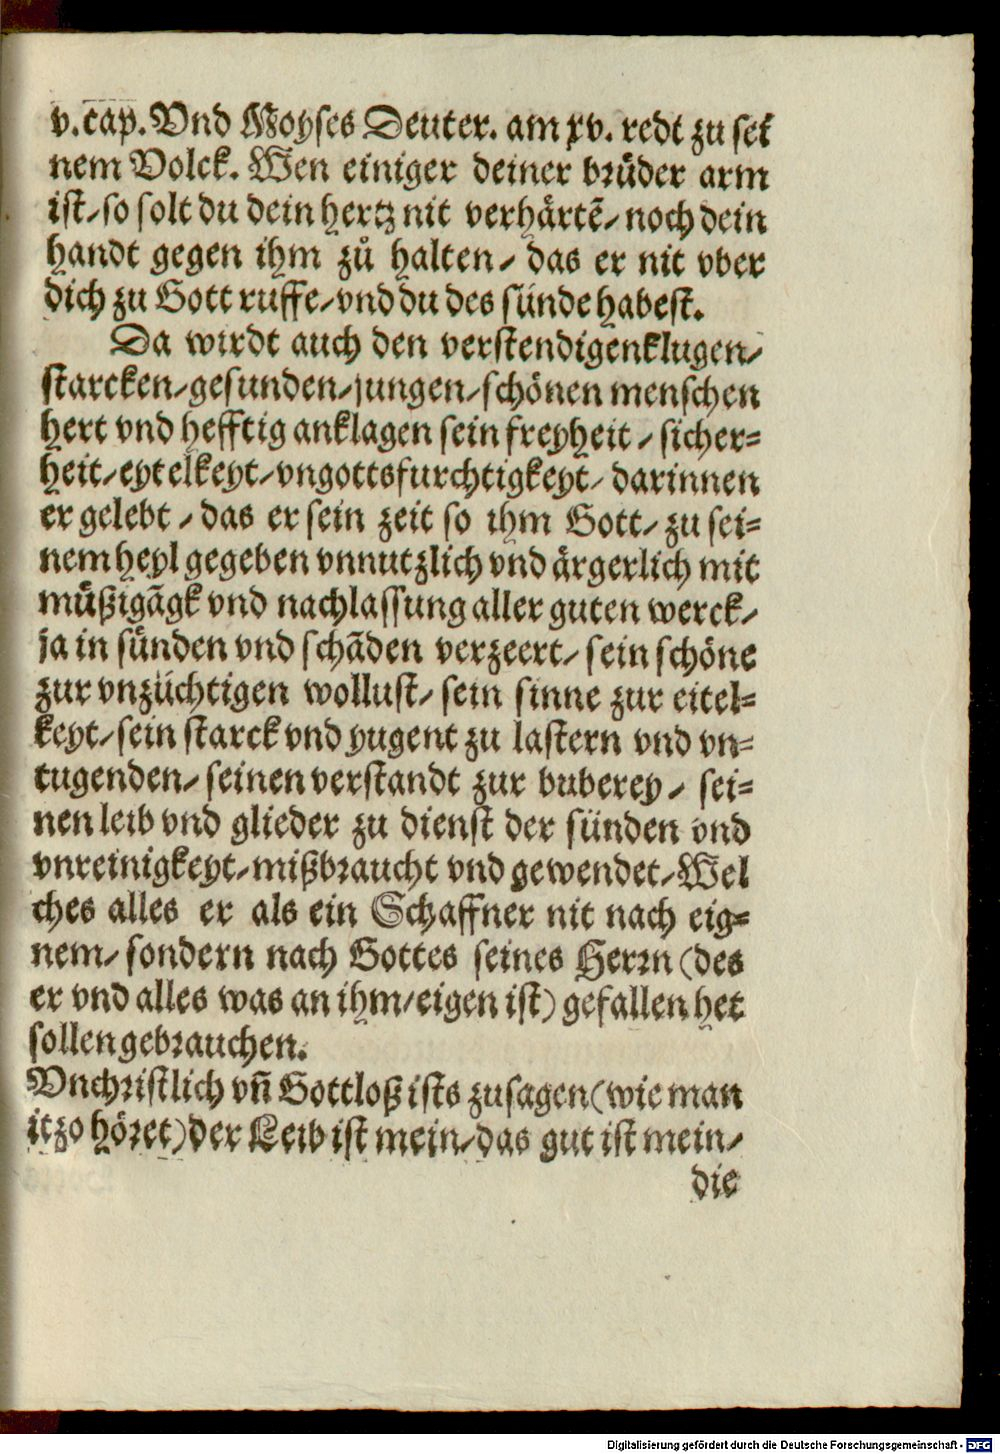 v. cap. Vnd Moyses Deuter. am xv. redt zu sei
nem Volck. Wen einiger deiner brüder arm
ist/ so solt du dein hertz nit verhärtẽ/ noch dein
handt gegen ihm zů halten/ das er nit vber
dich zu Gott ruffe/ vnd du des sünde habest.
Da wirdt auch den verstendigen klugen/
starcken/ gesunden/ jungen/ schönen menschen
hert vnd hefftig anklagen sein freyheit/ sicher⸗
heit/ eytelkeyt/ vngottsfurchtigkeyt/ darinnen
er gelebt/ das er sein zeit so ihm Gott/ zu sei⸗
nem heyl gegeben vnnutzlich vnd ärgerlich mit
müßigãgk vnd nachlassung aller guten werck/
ja in sünden vnd schãden verzeert/ sein schöne
zur vnzüchtigen wollust/ sein sinne zur eitel⸗
keyt/ sein starck vnd yugent zu lastern vnd vn⸗
tugenden/ seinen verstandt zur buberey/ sei⸗
nen leib vnd glieder zu dienst der sünden vnd
vnreinigkeyt/ mißbraucht vnd gewendet/ Wel
ches alles er als ein Schaffner nit nach eig⸗
nem/ sondern nach Gottes seines Herrn (des
er vnd alles was an ihm/ eigen ist) gefallen het
sollen gebrauchen.
Vnchristlich vñ Gottloß ists zusagen (wie man
itzo höret) der Leib ist mein/ das gut ist mein/
die
Digitalisierung gefördert durch die Deutsche Forschungsgemeinschaft - DFG